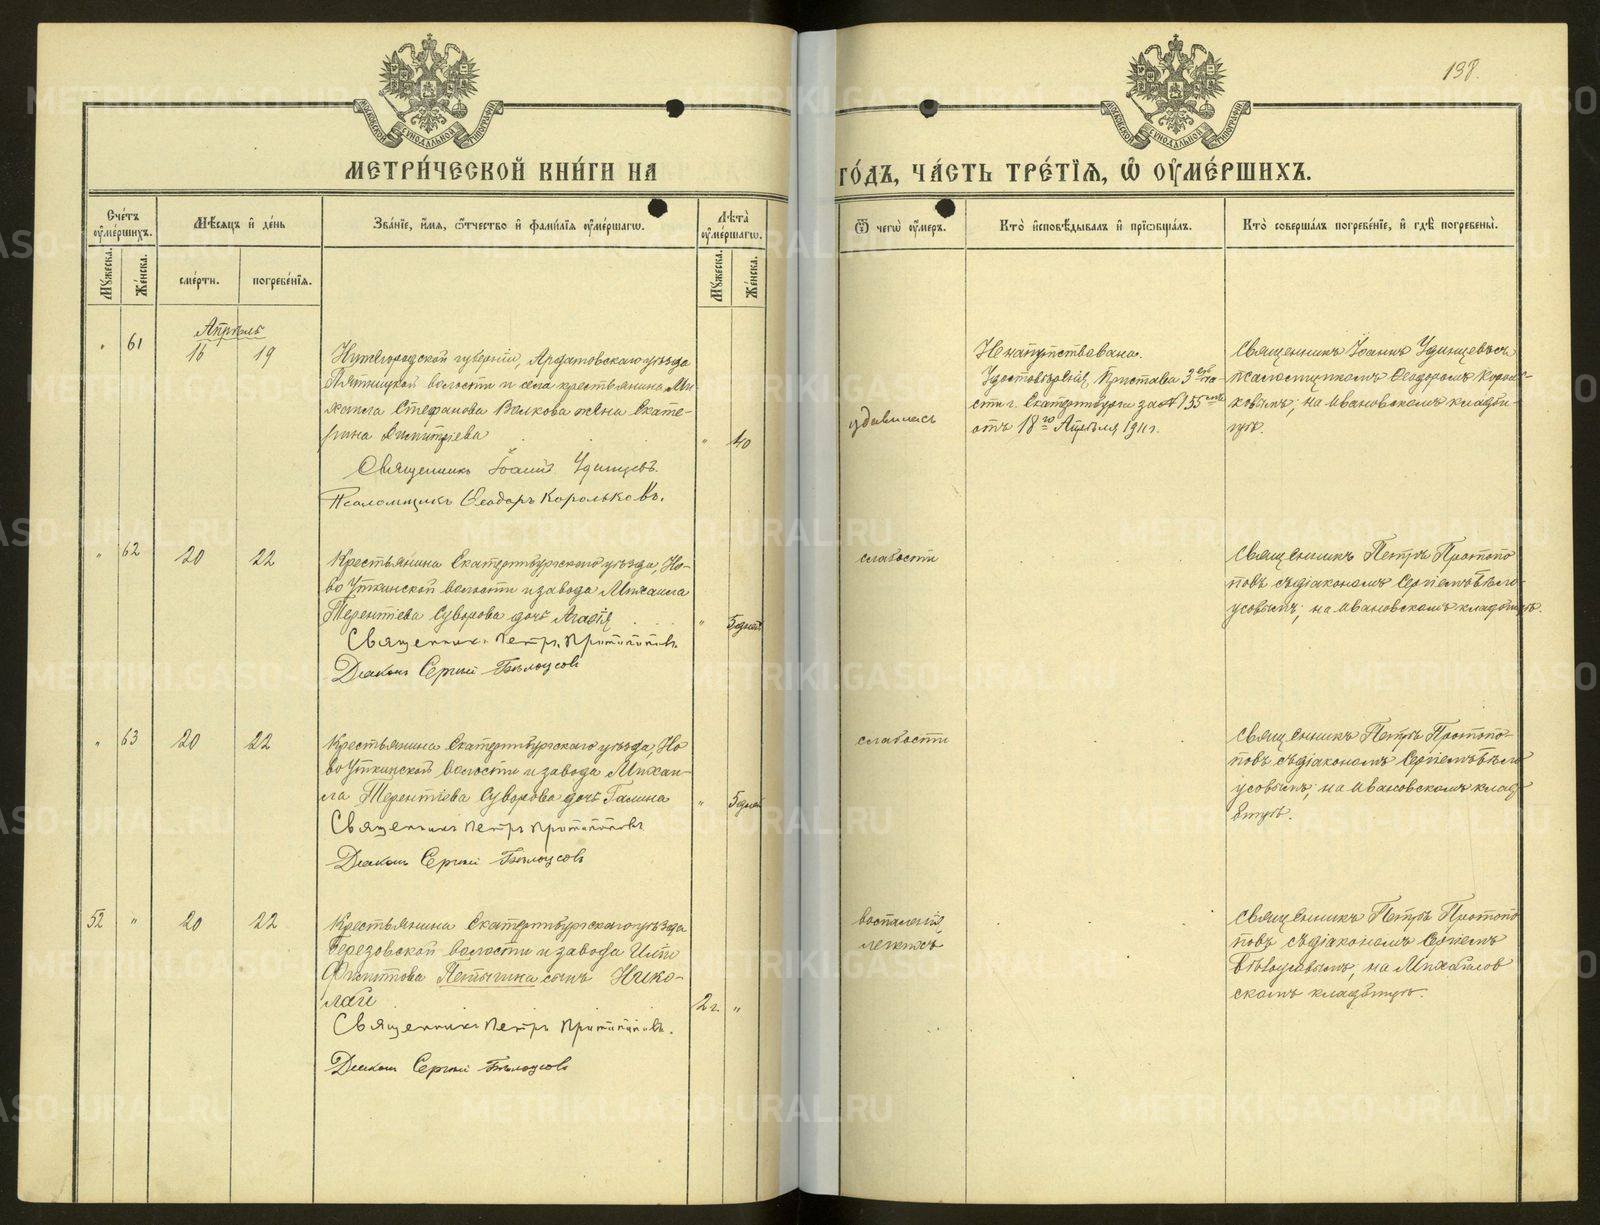 138.
МОСКОВСКОЙ СУНОДАЛЬНОЙ ТИПОГРАФІИ
МОСКОВСКОЙ СУНОДАЛЬНОЙ ТИПОГРАФІИ
МЕТРИ́ЧЕСКОЙ КНИ́ГИ НА
ГО́ДЪ, ЧА́СТЬ ТРЕ́ТІѦ, Ѿ ОУМЕ́РШИХЪ.
Сче́тъ оуме́ршихъ.
Мѣ́сѧцъ и де́нь
Зва́нїе, и́мѧ, ѻ́тчество и фами́лїѧ оуме́ршагѡ.
Лѣ́та оуме́ршагѡ.
Ѿ чегѡ̀ оу́меръ.
Кто̀ исповѣ́дывалъ и прїѡбща́лъ.
Кто̀ соверша́лъ погребе́нїе, и гдѣ̀ погребены̀.
Мꙋжеска.
Же́нска.
сме́рти.
погребе́нїѧ.
Мꙋжеска.
Же́нска.
Апрѣль
" 61 16 19
Нижегородской губерніи, Ардатовскаго уѣзда
волости и села крестьянина Ми-
хаила Стефанова Волкова жена Екате-
рина Димитріева
" 40
Священникъ Іоаннъ Удинцевъ.
Псаломщикъ Ѳеодоръ Корольковъ.
удавилась
Ненапутствована.
Удостовѣреніе Пристава 3ей ча-
сти г. Екатеринбурга за №
отъ 18го Апрѣля 1911 г.
Священникъ Іоаннъ Удинцевъ съ
псаломщикомъ Ѳеодоромъ Король-
ковымъ; на Ивановскомъ кладби-
щѣ.
" 62 20 22
Крестьянина Екатеринбургскаго уѣзда, Но-
во Уткинской волости и завода Михаила
Терентіева Суворова дочь Агаѳія
" 5 дней
Священникъ Петръ Протопоповъ.
Діаконъ Сергій Бѣлоусовъ
слабости
Священникъ Петръ Протопо-
повъ съ діакономъ Сергіемъ Бѣло-
усовымъ; на Ивановскомъ кладбищѣ.
" 63 20 22
Крестьянина Екатеринбургскаго уѣзда, Но
во Уткинской волости и завода Михаи-
ла Терентіева Суворова дочь Галина
" 5 дней
Священникъ Петръ Протопоповъ
Діаконъ Сергій Бѣлоусовъ
слабости
Священникъ Петръ Протопо-
повъ съ діакономъ Сергіемъ Бѣло
усовымъ; на Ивановскомъ клад-
бищѣ.
52 " 20 22
Крестьянина Екатеринбургскаго уѣзда
Березовской волости и завода Иліи
Филиппова сынъ Нико-
лай
2 г. "
Священникъ Петръ Протопоповъ.
Діаконъ Сергій Бѣлоусовъ
воспаленія
легкихъ
Священникъ Петръ Протопо
повъ съ діакономъ Сергіемъ
Бѣлоусовымъ; на Михайлов
скомъ кладбищѣ.
METRIKI.GASO-URAL.RU